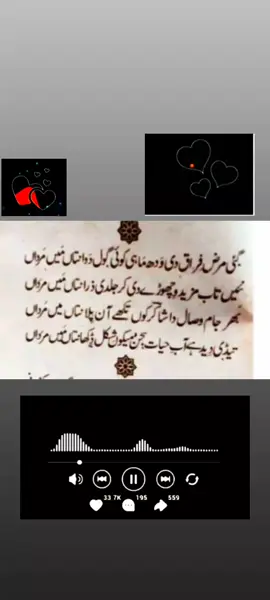 گئی مرض فراق دی ودھ ماہی کوئی گول دوا نتاں میں مرداں
نہیں تاب مزید وچھوڑے دی کر جلدی ذرا نتاں میں مرداں
بھر جام وصال دا شاکر کوں تکھے آن پلا نتاں میں مرداں
تیڈی دید ہے آب حیات سجن میکوں شکل ڈکھا نتاں میں مرداں
33 7K 195 559